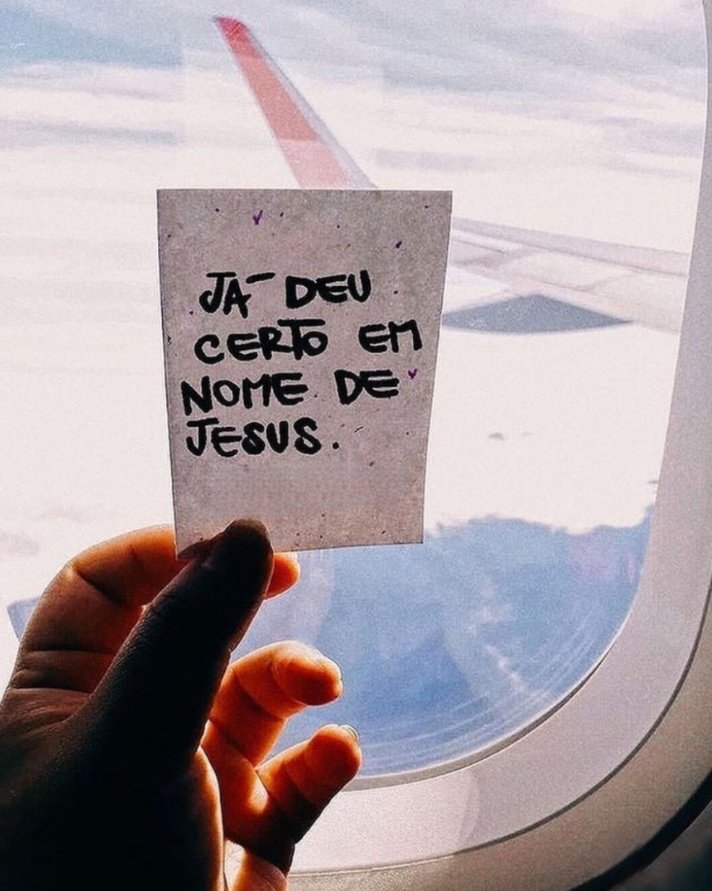 JÁ DEU
CERTO EM
NOME DE
JESUS.